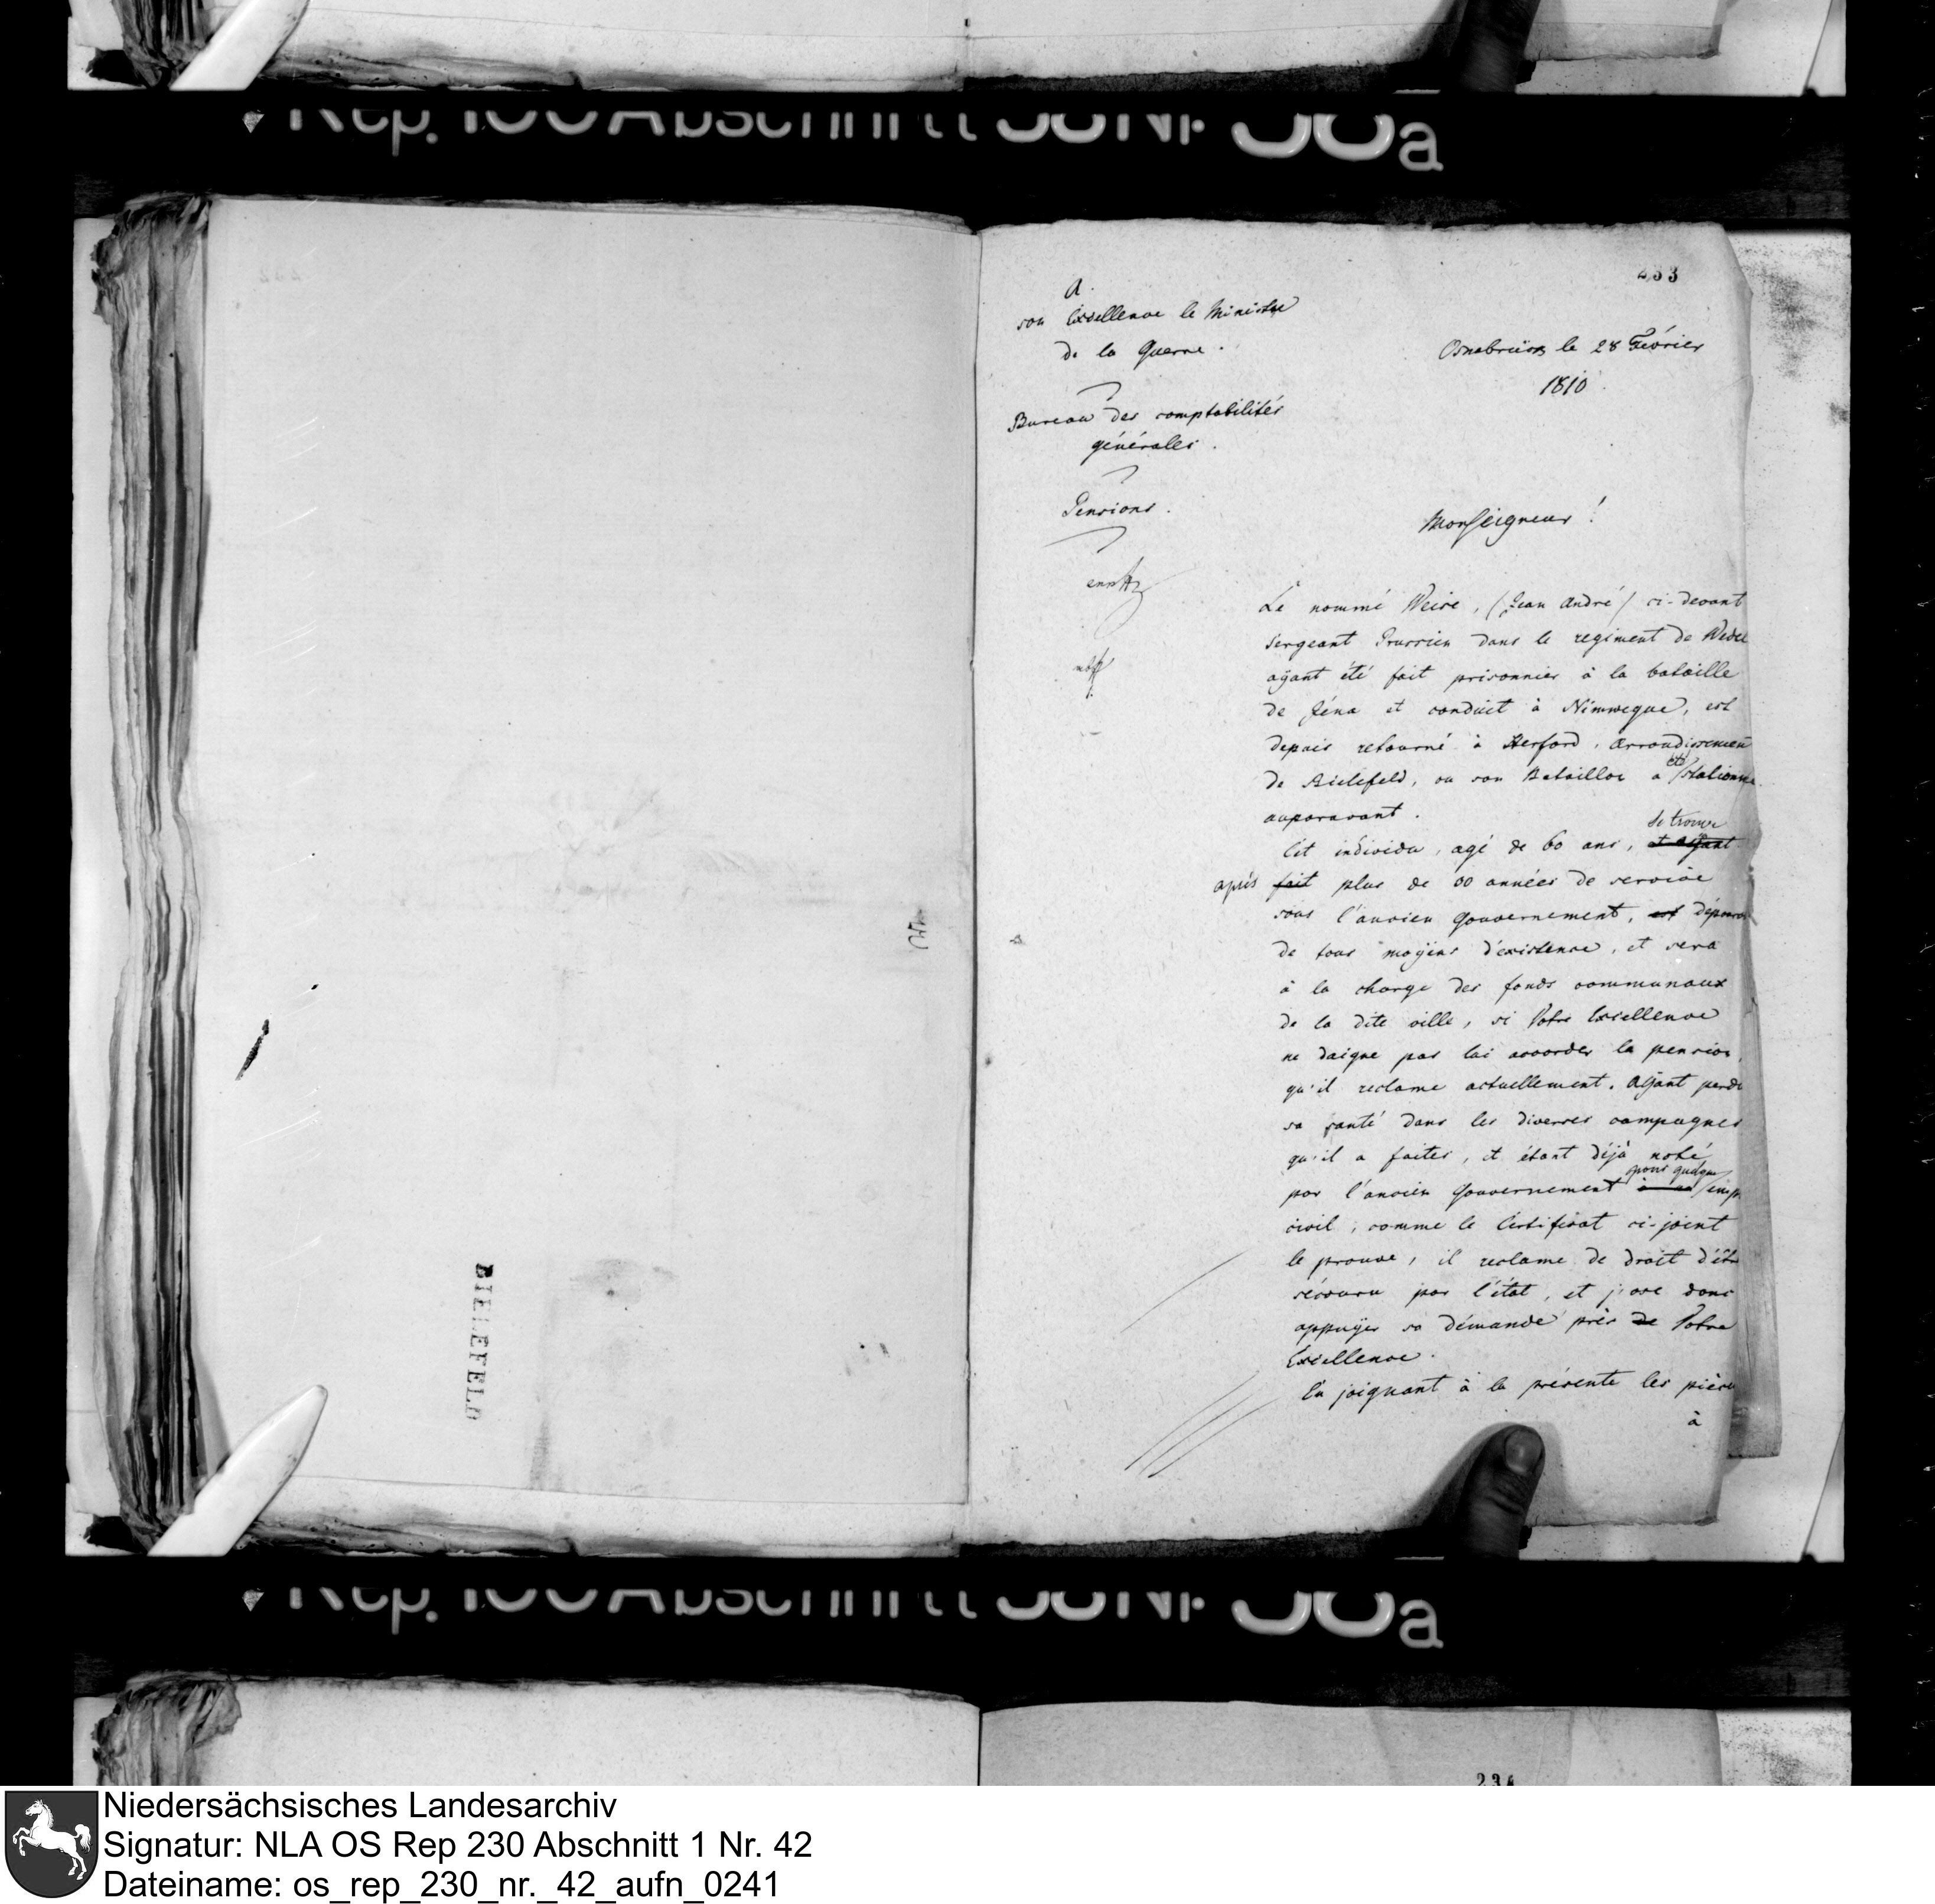 Rep. 100 Abschnitt 38 Nr 38a
233
A.
son Excellence le Ministre
de la Guerre.
Bureau des comptabilités
générales.
Pensions.
Osnabrück le 28 Fevrier
1810.
Monseigneur!
Le nommé Weise, (Jean André) ci-devant
sergeant Prussien dans le regiment de Wedel
aÿant été fait prisonnier à la bataille
de Jéna et conduit à Nimwegue, est
depuis retourné à Herford, Arrondissement
de Bielefeld, ou son Bataillon a été stationné
auparavant.
Cet individu, agé de 60 ans, et aÿant se trouve
après fait plus de 00 années de service
sous l'ancien Gouvernement, est dépourvu
de tous moÿens d'existence, et sera
à la charge des fonds communaux
de la dite ville, si Votre Excellence
ne daigne pas lui accorder la pension,
qu'il reclame actuellement. Aÿant perdu
sa santé dans les diverses campagnes
qu'il a faites, et étant déjà noté
par l'ancien Gouvernement pour quelque emp
civil, comme le Certificat ci-joint
le prouve, il reclame de droit d'être
sécouru par l'état, et j'ose donc
appuÿer sa démande près de Votre
Excellence.
En joignant à la présente les pièces
à
BIELEFELD
Rep. 100 Abschnitt 38 Nr 38a
234
Niedersächsisches Landesarchiv
Signatur: NLA OS Rep 230 Abschnitt 1 Nr. 42
Dateiname: os_rep_230_nr._42_aufn_0241